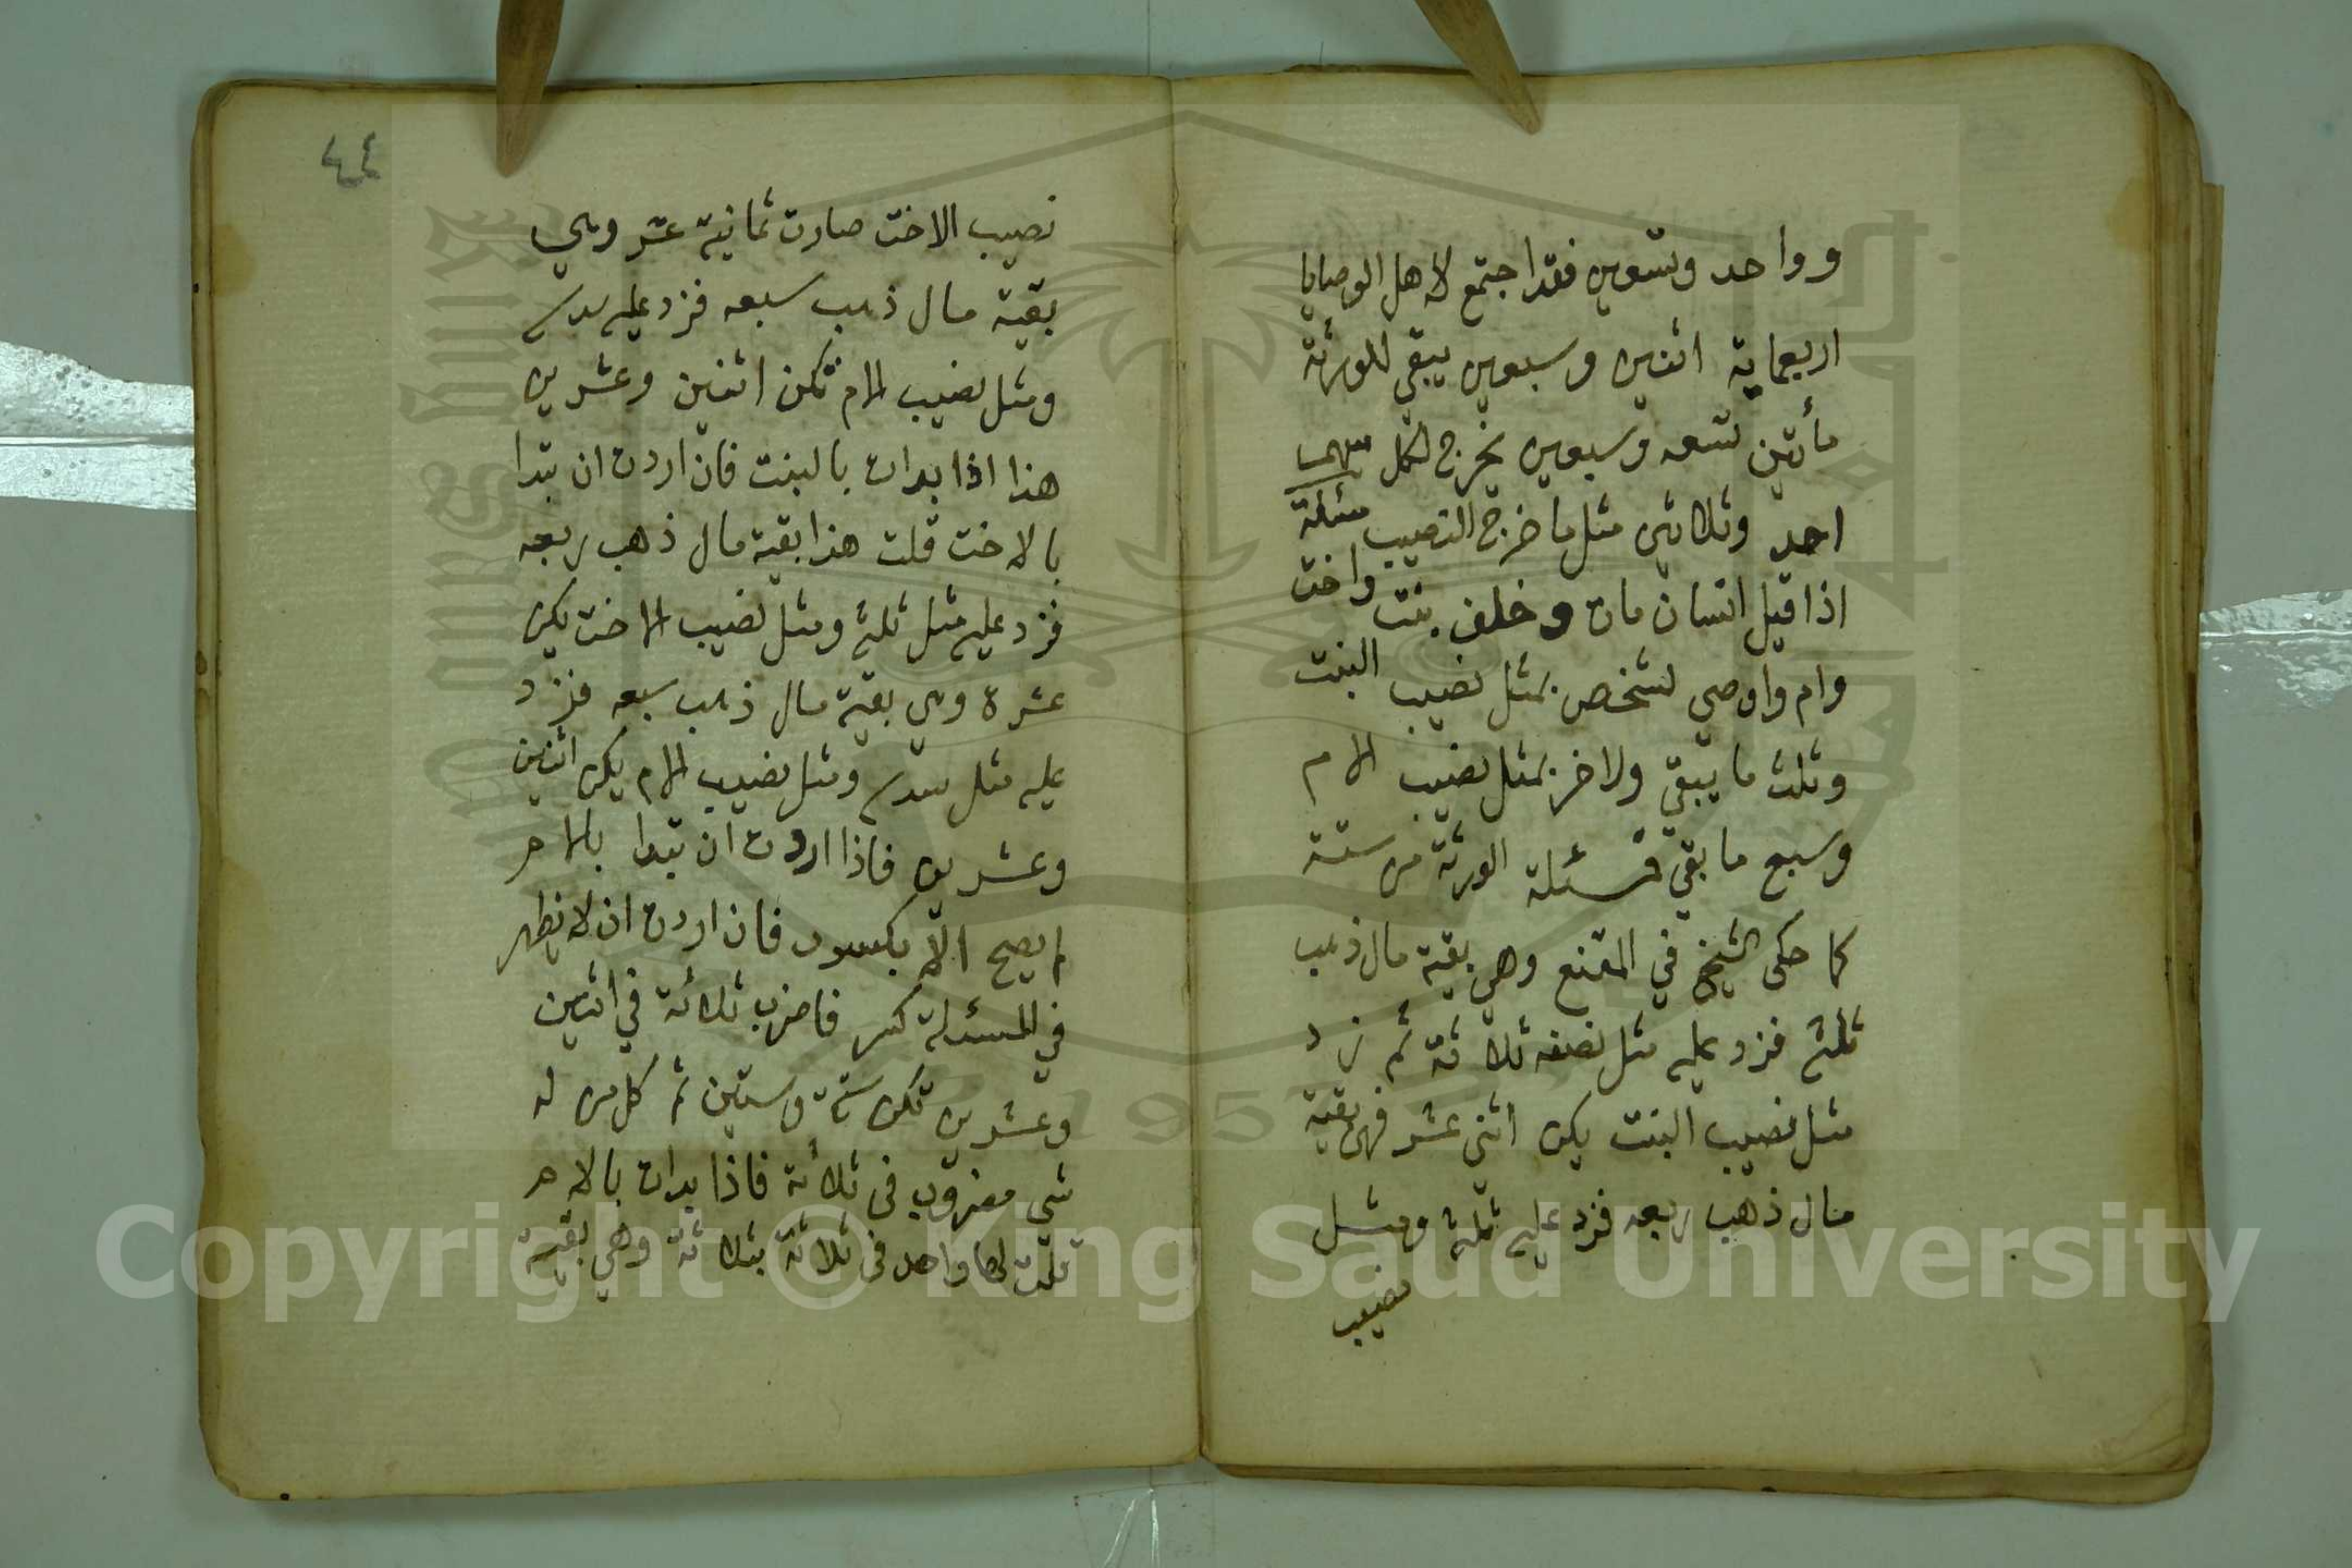 وواحد وتسعين فقد اجتمع لاهل الوصايا
اربعماية اثنين وسبعين يبقي للورثة
مأتين تسعه وسبعين يخرج لكل سهم
احد وثلاثين مثل ما خرج النصيب مسئلة
اذا قيل انسان مات وخلف بنت واخت
وام واوصي لشخص بمثل نصيب البنت
وثلث ما يبقي ولاخر بمثل نصيب الام
وسبع ما بقي فمسئلة الورثة من ستة
كما حكى الشيخ في المقنع وهي بقية مال ذهب
ثلثه فزد عليه مثل نصفه ثلاثة ثم زد
مثل نصيب البنت يكن اثني عشر فهي بقية
مال ذهب ربعه فزد عليه ثلثه ومثل
نصيب
٤٤
نصيب الاخت صارت ثمانية عشر وهي
بقية مال ذهب سبعه فزد عليه سدسه
ومثل نصيب الام تكن اثنين وعشرين
هذا اذا بدات بالبنت فان اردت ان تبدا
بالاخت قلت هذا بقية مال ذهب ربعه
فزد عليه مثل ثلثه ومثل نصيب الاخت يكن
عشرة وهي بقية مال ذهب سبعه فزد
عليه مثل سدسه ومثل نصيب الام يكن اثنين
وعشرين فاذا اردت ان تبدا بالام
لم يصح الا بكسور فان اردت ان لا يظهر
في المسئلة كسر فاضرب ثلاثة في اثنين
وعشرين تكن ستة وستين ثم كل من له
شي مضروب في ثلاثة فاذا بدات بالام
قلت لها واحد في ثلاثة بثلاثة وهي بقية
Copyright © King Saud University
1957